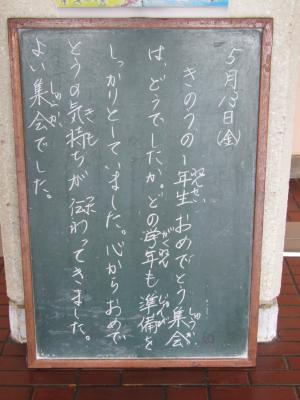 5月13日(金)
きのうの1年生おめでとう集会
は、どうでしたか。どの学年も準備を
しっかりとしていました。心からおめで
とうの気持ちが伝わってきました。
よい集会でした。